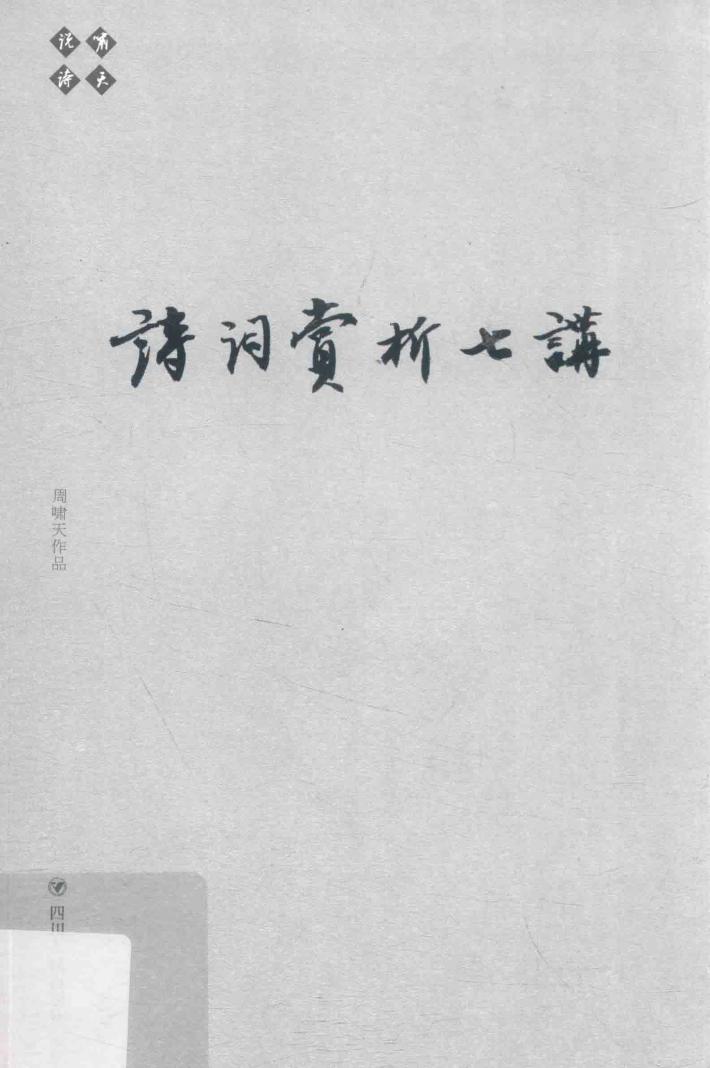 啸天
说诗
詩词賞析七講
周啸天作品
四川